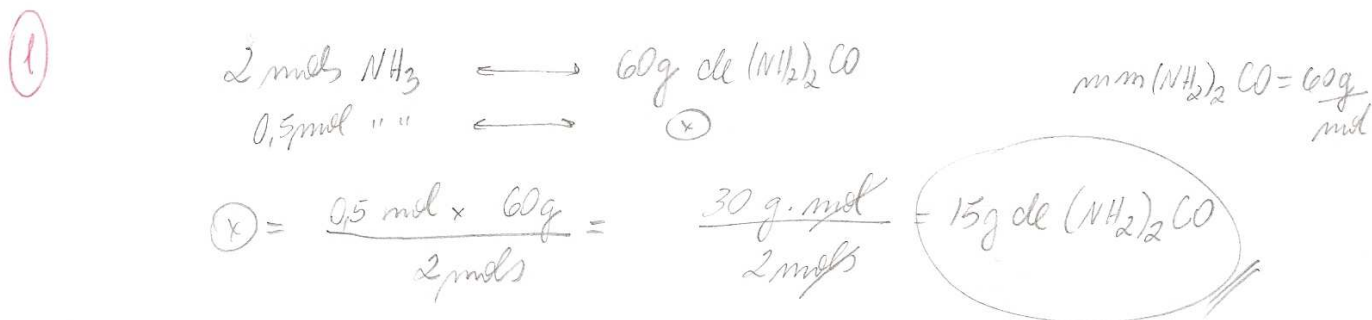 1
2 mols NH₃ ⟷ 60g de (NH₂)₂ CO
mm (NH₂)₂ CO = 60g/mol
0,5mol " " ⟷ x
x = 0,5 mol x 60g / 2 mols = 30 g.mol / 2 mols = 15g de (NH₂)₂ CO